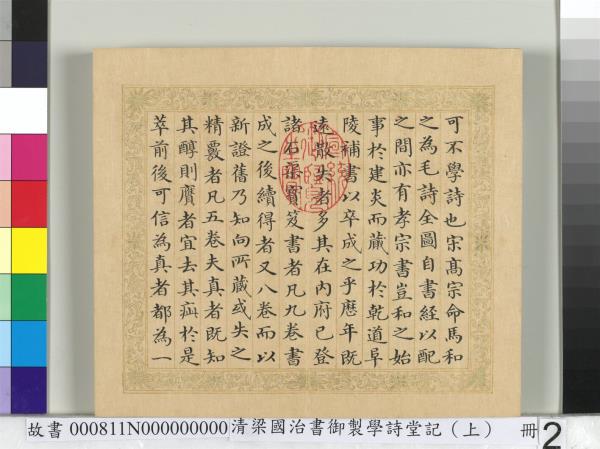 可不學詩也宋高宗命馬和
之為毛詩全圖自書經以配
之間亦有孝宗書豈和之始
事於建炎而蕆功於乾道阜
陵補書以卒成之乎歷年既
遠散失者多其在內府已登
諸石渠寶笈書者凡九卷書
成之後續得者又八卷而以
新證舊乃知向所藏或失之
精覈者凡五卷夫真者既知
其醇則贗者宜去其疵於是
萃前後可信為真者都為一
故書 000811N000000000 清梁國治書御製學詩堂記（上） 冊 2